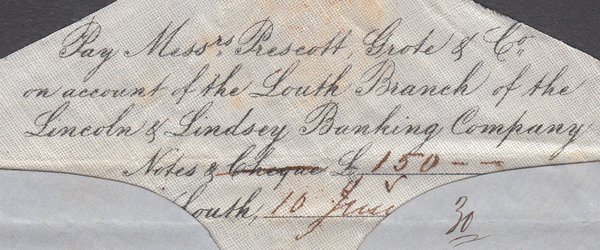 Pay Messrs. Prescott, Grote & Co.
on account of the Louth Branch of the
Lincoln & Lindsey Banking Company
Notes & Cheque £ 150 - -
Louth, 16
30